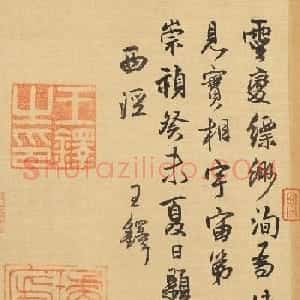 靈變縹緲洵吾
見寶相宇宙第
崇禎癸未夏日題
西涇 王鐸
王鐸之印
shufaziliao.COM